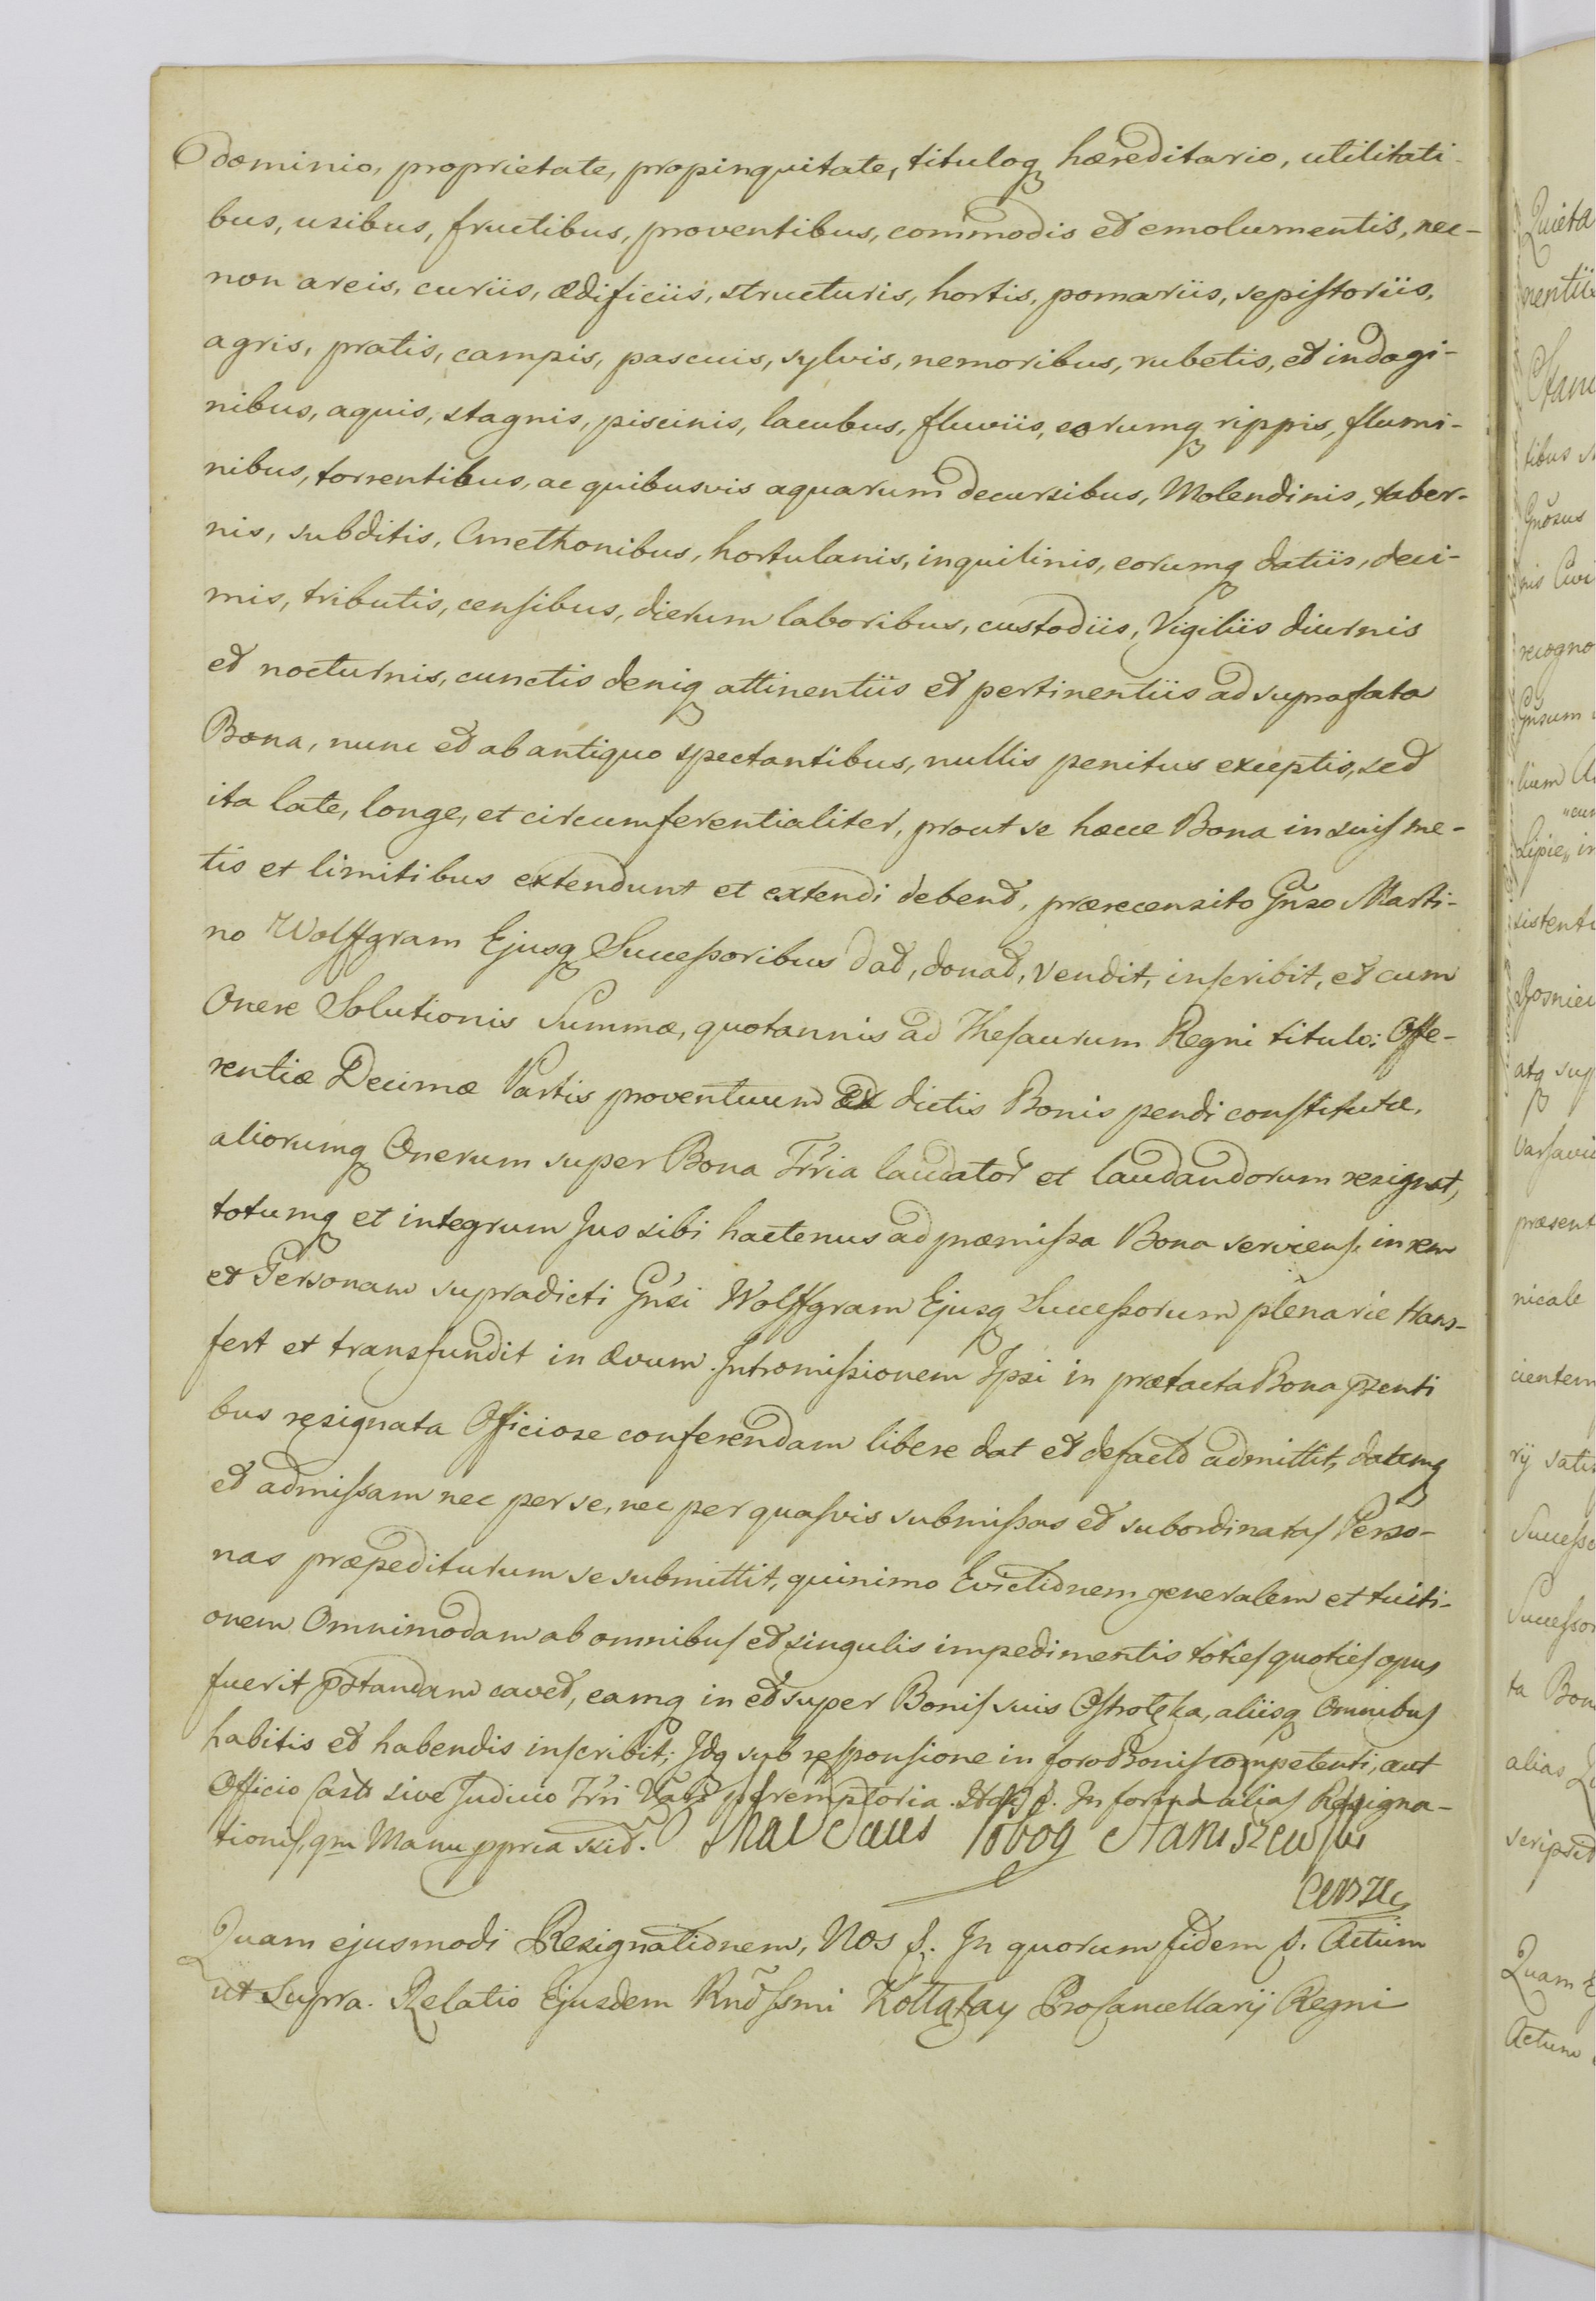 dominio, proprietate, propinquitate, tituloq hæreditario, utilitati-
bus, usibus, fructibus, proventibus, commodis et emolumentis, nec-
non areis, curiis, ædificiis, structuris, hortis, pomariis, sepistoriis,
agris, pratis, campis, pascuis, sylvis, nemoribus, rubetis, et indagi-
nibus, aquis, stagnis, piscinis, lacubus, fluviis, eorumq rippis, flumi-
nibus, torrentibus, ac quibusvis aquarum decursibus, Molendinis, taber-
nis, subditis, Cmethonibus, hortulanis, inquilinis, eorumq datiis, deci-
mis, tributis, censibus, dierum laboribus, custodiis, Vigiliis diurnis
et nocturnis, cunctis deniq attinentiis et pertinentiis ad suprafata
Bona, nunc et ab antiquo spectantibus, nullis penitus exceptis, sed
ita late, longe, et circumferentialiter, prout se hæcce Bona in suis me-
tis et limitibus extendunt et extendi debent, præcensito Gñso Marti-
no Wolffgram Ejusq Successoribus dat, donat, vendit, inscribit, et cum
Onere Solutionis Summæ, quotannis ad Thesaurum Regni titulo: Offe-
rentiæ Decimæ Partis proventuum ex dictis Bonis pendi constitutæ,
aliorumq Onerum super Bona Trria laudator et laudandorum resignat,
totumq et integrum Jus sibi hactenus ad præmissa Bona serviens, in rem
et Personam supradicti Gñsi Wolffgram Ejusq Successorum plenarie trans-
fert et transfundit in ævum. Intromissionem Ipsi in prætacta Bona pzenti
bus resignata Officiose conferendam libere dat et defacto admittit, datamq
et admissam nec per se, nec per quasvis submissas et subordinatas Perso-
nas præpediturum se submittit, quinimo Evictionem generalem et tuiti-
onem Omnimodam ab omnibus et singulis impedimentis toties quoties opus
fuerit pstandam cavet, eamq in et super Bonis suis Ostrołęka, aliisq Omnibus
habitis et habendis inscribit; Idq sub responsione in foro Bonis competenti, aut
Officio Castr sive Judicio Trri peremptoria. In forma alias Resigna-
tionis, qm Manu ppria szit. Staniszewski
Quam ejusmodi Resignationem, Nos p. In quorum fidem p. Actum
ut Supra. Relatio Ejusdem Rndssmi Kołłątay Procancellarij Regni